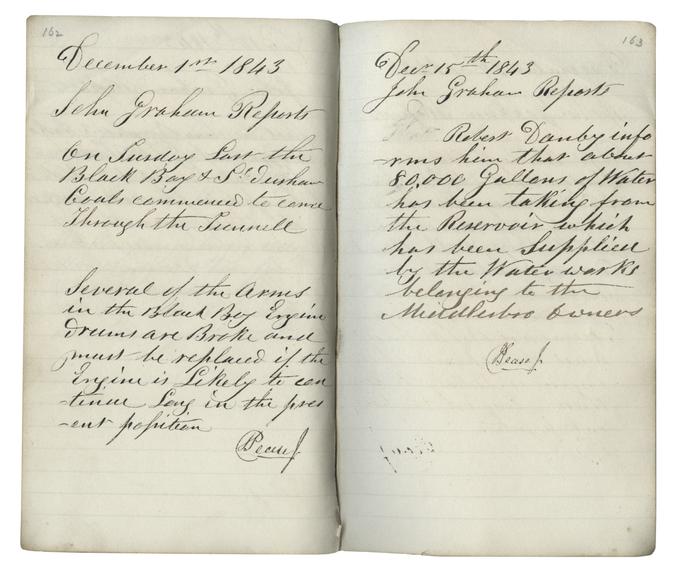 162
December 1st 1843
John Graham Reports
On Tusday Last the
Black Boy & St. Durham
Coals commenced to come
Through the Tunnell
Several of the Arms
in the Black Boy Engine
drums are Broke and
must be replaced if the
Engine is Likely to con
-tinue Long in the pres
-ent position
Pease J
163
Decr 15th 1843
John Graham Reports
Robert Danby info
-rms him that about
80,000 Gallons of Water
has been taking from
the Reservoir which
has been Supplied
by the Water works
belonging to the
Middlesbro Owners
Pease J